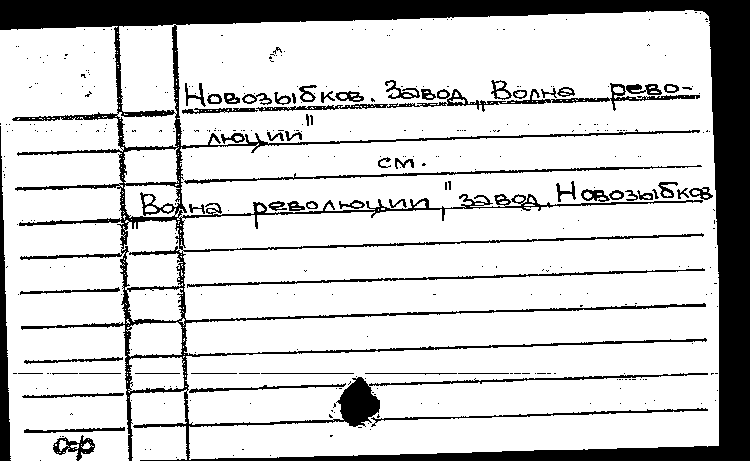 Новозыбков. Завод „Волна рево-
люции"
см.
„Волна революции," завод. Новозыбков